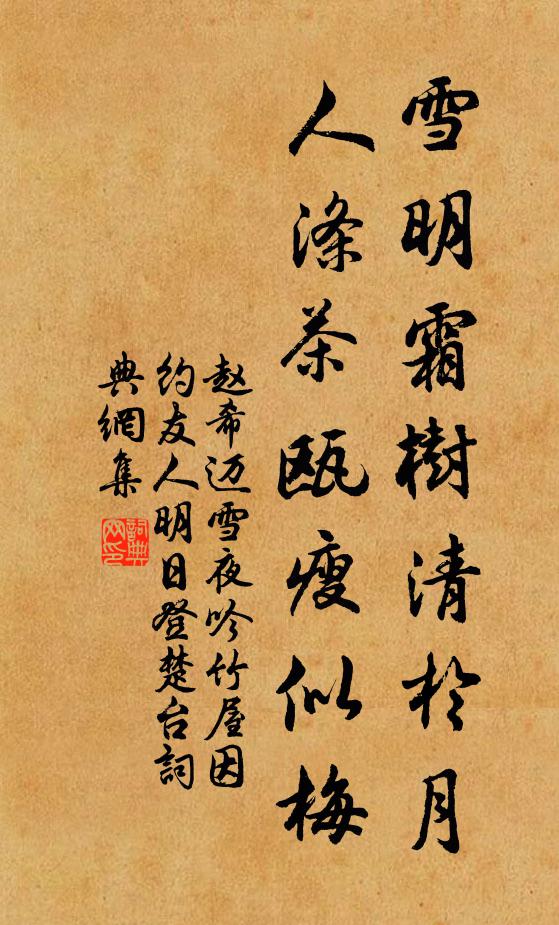 雪明霜樹清於月
人滌茶甌瘦似梅
赵希迈雪夜吟竹屋因
约友人明日登楚台詞
典網集
詞典
网印